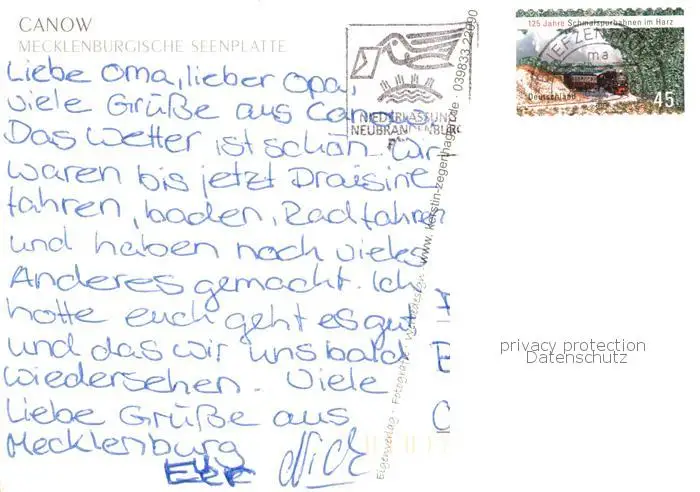 CANOW
MECKLENBURGISCHE SEENPLATTE
Liebe Oma, lieber Opa,
viele Grüße aus Canow.
Das Wetter ist schön. Wir
waren bis jetzt Draisine
fahren, baden, Radfahren
und haben noch vieles
Anderes gemacht. Ich
hoffe euch geht es gut
und das wir uns bald
wiedersehen. Viele
Liebe Grüße aus
Mecklenburg
Nick
NIEDERLASSUNG
NEUBRANDENBURG
BRIEFZENTRUM
125 Jahre Schmalspurbahnen im Harz
Deutschland
45
Eigenverlag · Fotografie · www.kerstin-zegenhagen.de · 039833 22090
privacy protection
Datenschutz